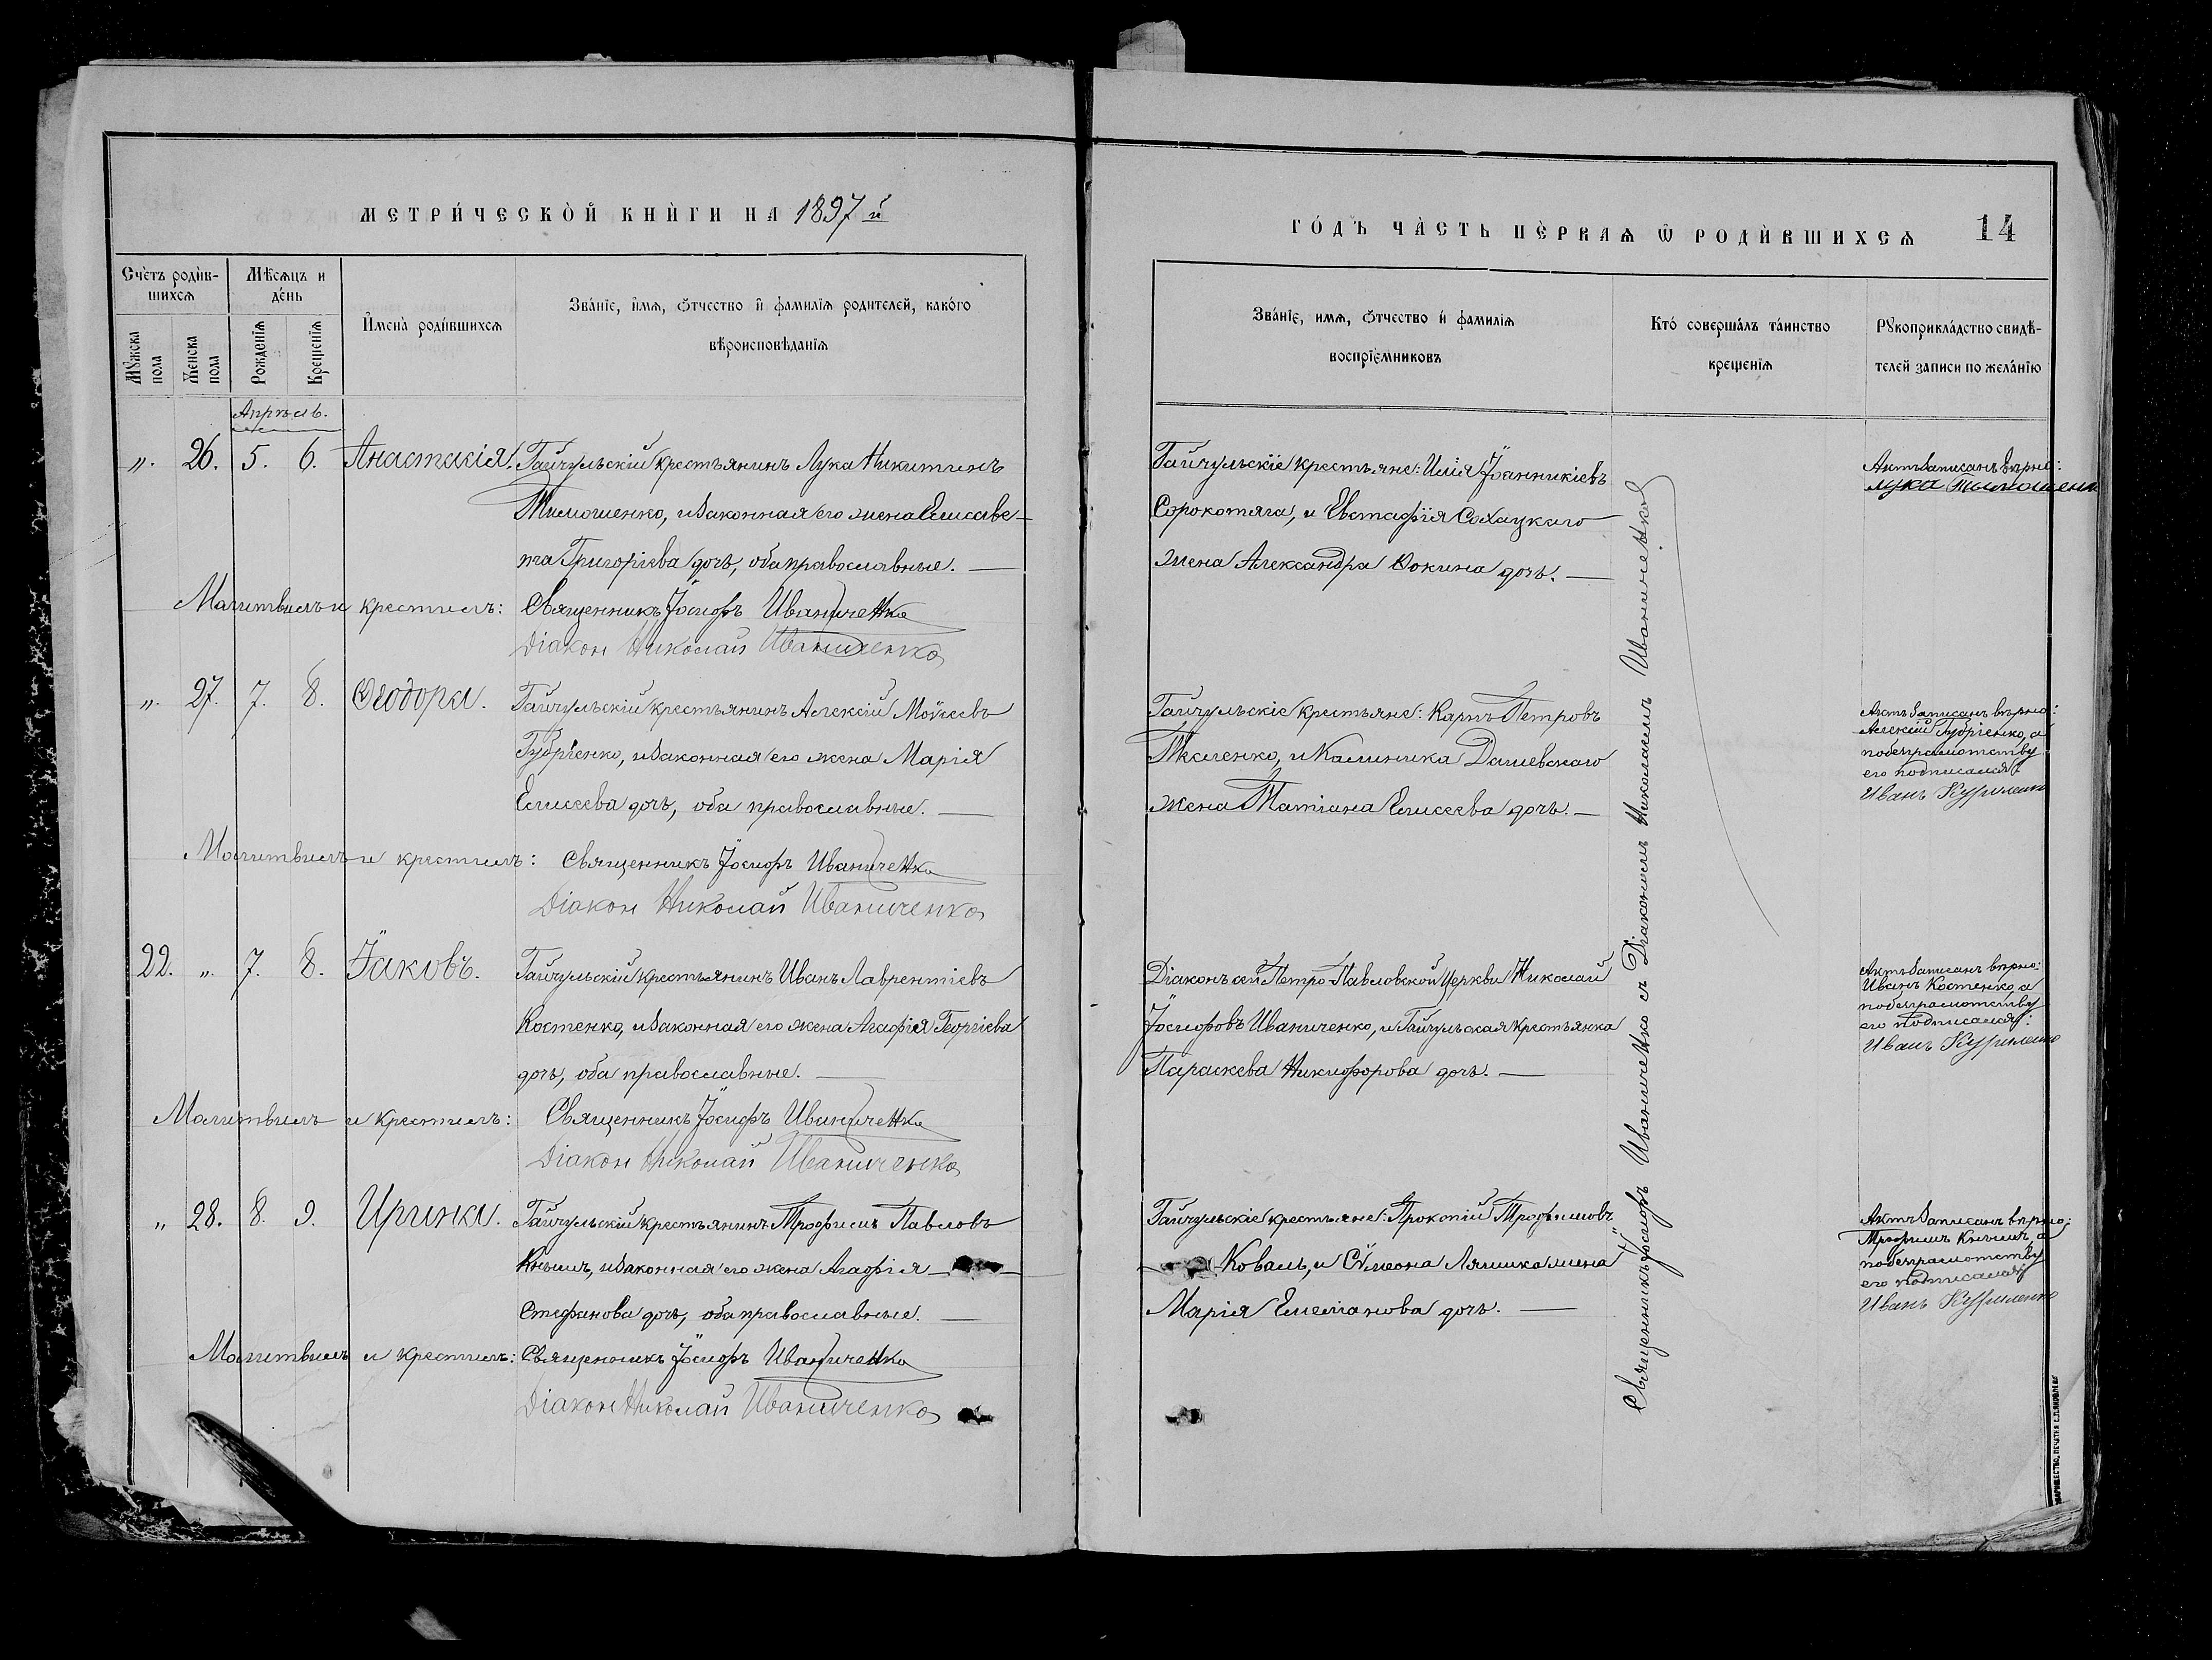 МЕТРИ́ЧЕСКОЙ КНИ́ГИ НА 1897 й
Сче́тъ роди́в-
шихсѧ
Мѣ́сѧцъ и
де́нь
Мꙋ́жска
пола
Же́нска
пола
Рожденїѧ
Крещенїѧ
И҆мена̀ роди́вшихсѧ
Зва́нїе, и҆́мѧ, ѻ҆́тчество и҆ фамилїѧ родителей, како́го
вѣроисповѣданїѧ
Апрѣль.
„. 26. 5. 6. Анастасія. Гайчульскій крестьянинъ Лука Никитинъ
Тимошенко, и законная его жена Елисаве-
та Григоріева дочь, оба православные. —
Молитвилъ и крестилъ: Священникъ Іосифъ Иваниченко
Діакон Николай Иваниченко
„. 27. 7. 8. Ѳеодора. Гайчульскій крестьянинъ Алексій Моѵсеевъ
Губріенко, и законная его жена Марія
Елисеева дочь, оба православные. —
Молитвилъ и крестилъ: Священникъ Іосифъ Иваниченко
Діакон Николай Иваниченко
22. „. 7. 8. Іаковъ. Гайчульскій крестьянинъ Иванъ Лаврентіевъ
Костенко, и законная его жена Агафія Георгіева
дочь, оба православные. —
Молитвилъ и крестилъ: Священникъ Іосифъ Иваниченко
Діакон Николай Иваниченко
„ 28. 8. 9. Ирина. Гайчульскій крестьянинъ Трофимъ Павловъ
Кнышъ, и законная его жена Агафія —
Стефанова дочь, оба православные. —
Молитвилъ и крестилъ: Священникъ Іосифъ Иваниченко
Діакон Николай Иваниченко
ГО́ДЪ ЧА́СТЬ ПЕ́РВАѦ Ѽ РОДИ́ВШИХСѦ 14
Зва́нїе, имѧ, ѻ҆́тчество и҆ фамилїѧ
воспрїе́мниковъ
Кто́ соверша́лъ та́инство
креще́нїѧ
Рꙋкоприкла́дство свидѣ́-
телей записи по жела́нїю
Гайчульскіе крестьяне: Илія Іоанникіевъ
Сорокотяга, и Евстафія Сохацкаго
жена Александра Фокина дочь. —
Актъ записанъ вѣрно:
Лука Тимошенк
Гайчульскіе крестьяне: Карпъ Петровъ
Текленко, и Калиника Дашевскаго
жена Татіана Елисеева дочь. —
Актъ записанъ вѣрно:
Алексій Губріенко, а
по безграмотству
его подписался
Иванъ Куриленко
Діаконъ сей Петро-Павловской Церкви Николай
Іосифовъ Иваниченко, и Гайчульская крестьянка
Параскева Никифорова дочь. —
Актъ записанъ вѣрно:
Иванъ Костенко, а
по безграмотству
его подписался:
Иванъ Куриленко
Гайчульскіе крестьяне: Прокопій Трофимовъ
Коваль, и Сѵмеона Ляшика жена
Марія Емеліанова дочь. —
Актъ записанъ вѣрно:
Трофимъ Кнышъ, а
по безграмотству
его подписался
Иванъ Куриленко
Священникъ Іосифъ Иваниченко съ Діакономъ Николаемъ Иваниченко